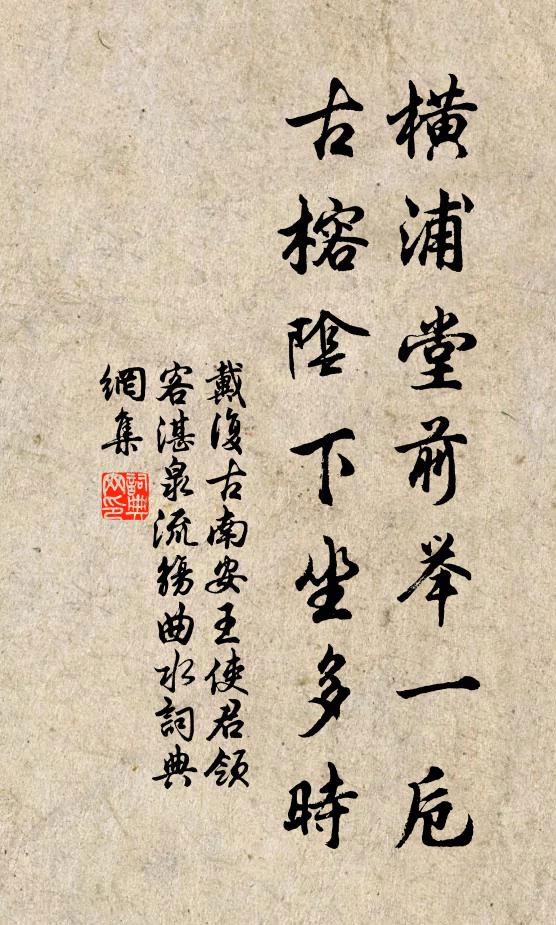 橫浦堂前举一卮
古榕陰下坐多時
戴復古南安王使君領
客湛泉流觴曲水詞典
網集
詞典
網印